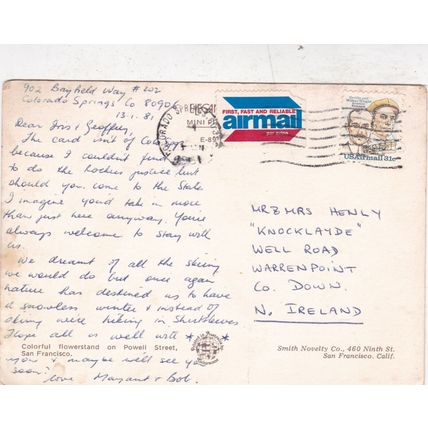 902 Bayfield Way # 202
Colorado Springs Co 80906
13.1.81
Dear Joss & Geoffrey,
The card isn't of
because I couldn't find
to do the Rockies justice but
should you come to the States
I imagine you'd take in more
than just here anyway. You're
always welcome to stay with
us.
We dreamt of all the skiing
we would do but once again
nature has destined us to have
a snowless winter & instead of
skiing we're hiking in shirtsleeves
Hope all is well with
you & maybe we'll see you
soon!
love Margaret & Bob.
Colorful flowerstand on Powell Street,
San Francisco.
COLORADO SPRINGS
FIRST, FAST AND RELIABLE
airmail
USAirmail 31c
MR & MRS HENLY
"KNOCKLAYDE"
WELL ROAD
WARRENPOINT
CO. DOWN.
N. IRELAND
Smith Novelty Co., 460 Ninth St.
San Francisco. Calif.